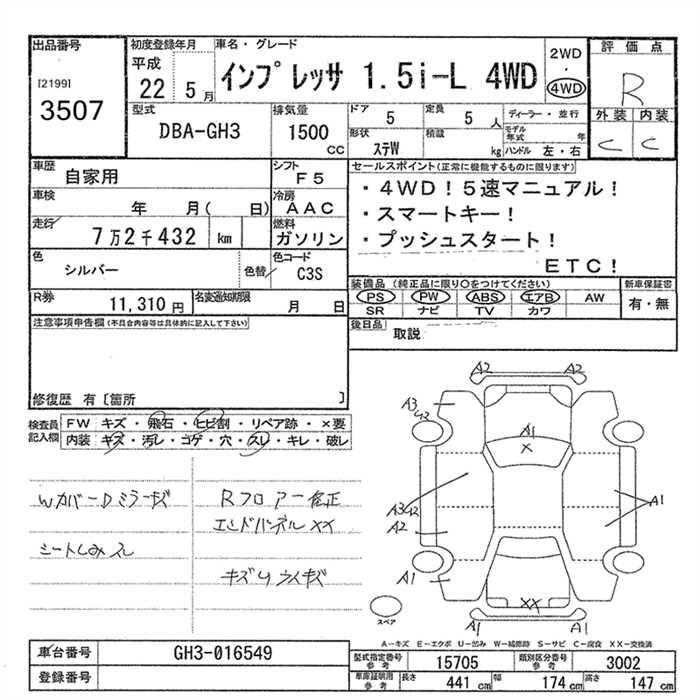 出品番号
[2199]
3507
初度登録年月
平成
22 5月
車名・グレード
インプレッサ 1.5i-L 4WD
2WD
・
4WD
評価点
R
外装 内装
C C
型式
DBA-GH3
排気量
1500
CC
ドア
5
定員
5 人
ディーラー・並行
形状
ステW
積載
kg
モデル年式 年
ハンドル 左・右
車歴
自家用
シフト
F5
車検
年 月( 日)
冷房
AAC
走行
7万2千432 km
燃料
ガソリン
色
シルバー
色替
色コード
C3S
R券
11,310 円
名変通知期限
月 日
セールスポイント(正常に機能するものに限ります)
・4WD!5速マニュアル!
・スマートキー!
・プッシュスタート!
ETC!
装備品 (純正品に限り○をつけてください)
新車保証書
PS PW ABS エアB AW
SR ナビ TV カワ
有・無
後日品
取説
注意事項申告欄(不具合内容等は具体的に記入して下さい)
修復歴 有〔箇所 〕
検査員
記入欄
FW キズ・飛石・ヒビ割・リペア跡・×要
内装 キズ・汚レ・コゲ・穴・スレ・キレ・破レ
WカバーDミラーキズ
シートしみスレ
Rフロアー修正
エンドパネルXX
A2
A2
A3
A1
X
A1
A2
A1
XX
A1
A1
スペア
A-キズ E-エクボ U-凹み W-補修跡 S-サビ C-腐食 XX-交換済
車台番号
GH3-016549
登録番号
型式指定番号
参考
15705
類別区分番号
参考
3002
車庫証明用
参考
長さ 441 cm
幅 174 cm
高さ 147 cm